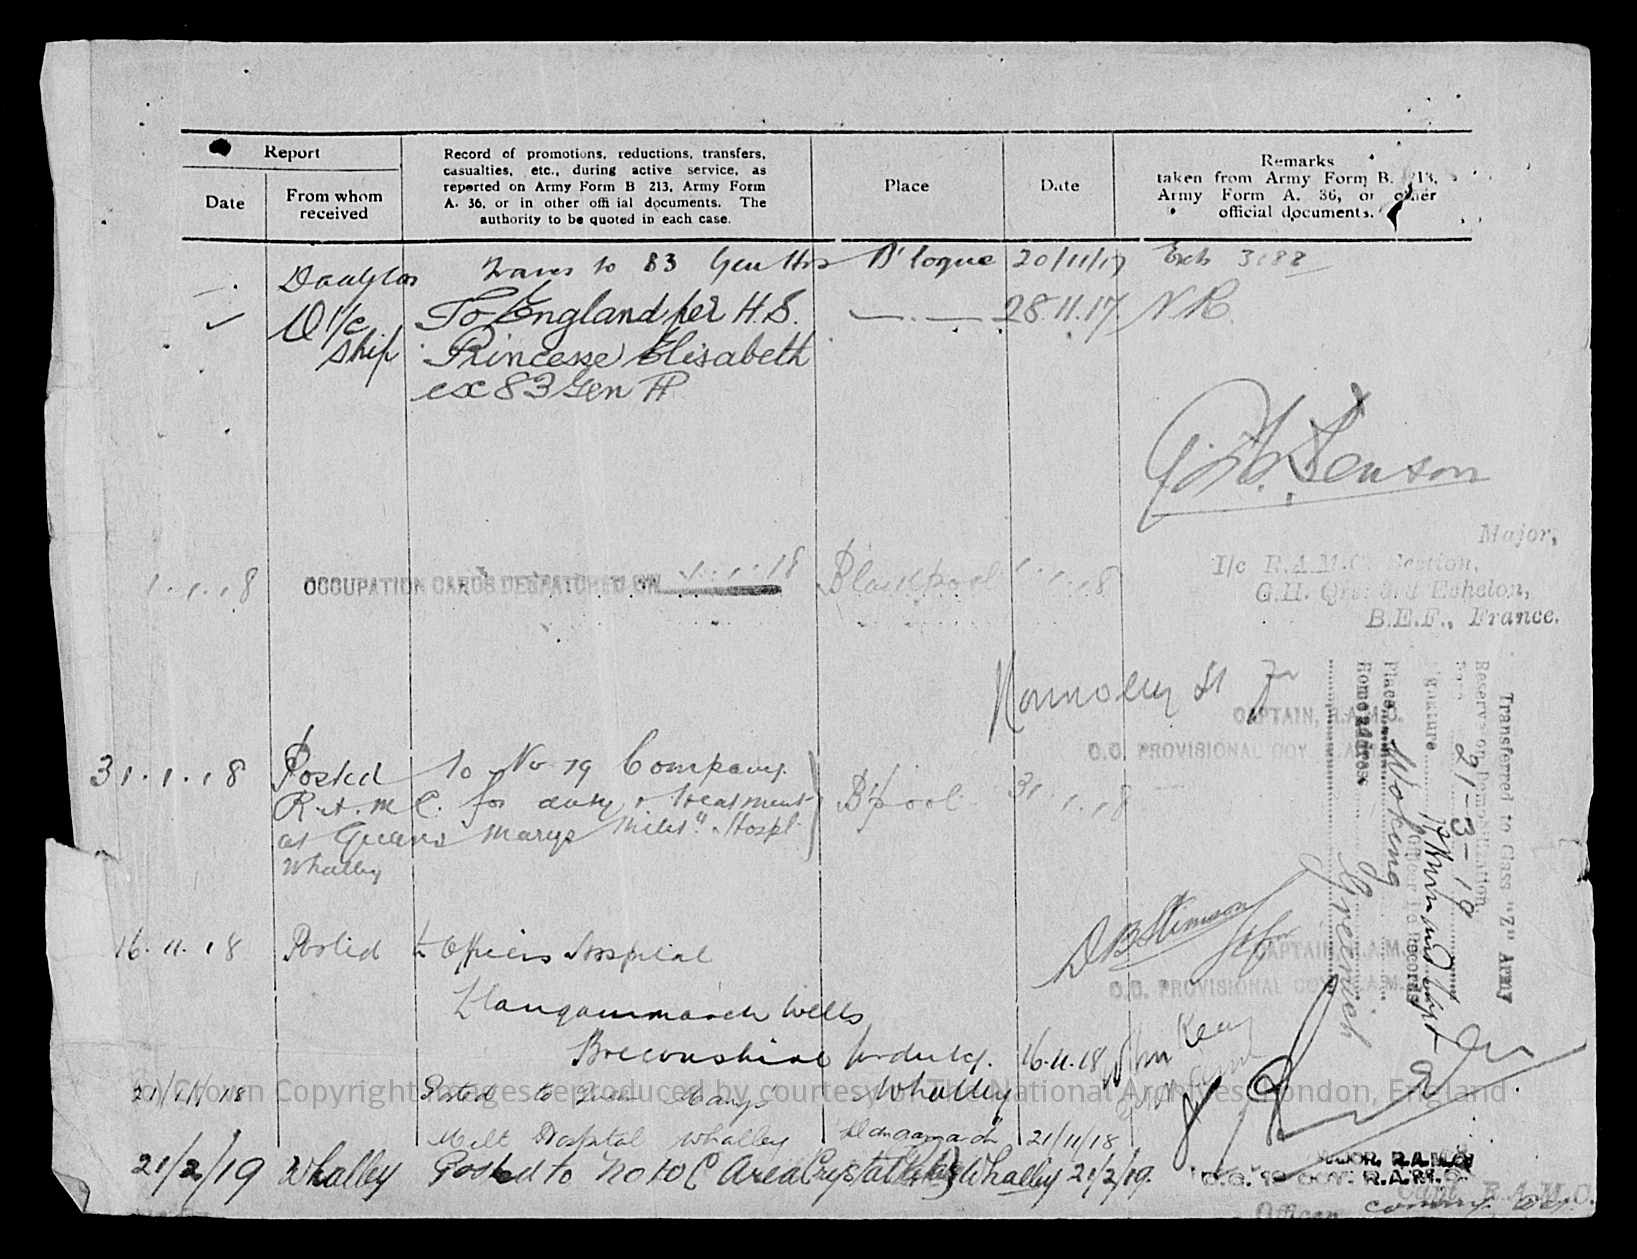 Report
Date
From whom received
Record of promotions, reductions, transfers,
casualties, etc., during active service, as
reported on Army Form B 213, Army Form
A. 36, or in other offi ial documents. The
authority to be quoted in each case.
Place
Date
Remarks
taken from Army Form B. 213,
Army Form A. 36, or other
official documents.
Douglas Trans to 83 Gen B'logne 20/11/17
O i/c To England per H.S. 28.11.17 NR
Ship Princesse Elisabeth
ex 83 Gen H
Major,
I/c R.A.M.C. Section,
G.H. Qrs. 3rd Echelon,
B.E.F., France.
1.1.18 OCCUPATION CARDS DESPATCHED ON 1.1.18 Blackpool 1.1.18
CAPTAIN, R.A.M.C.
O.C. PROVISIONAL COY. R.A.M.C.
31.1.18 Posted to No 19 Company B'pool 31.1.18
R.A.M.C. for duty & treatment
at Queens Marys Milty Hospl.
Whalley
CAPTAIN, R.A.M.C.
O.C. PROVISIONAL COY. R.A.M.C.
16.11.18 Posted to Officers Hospital
Llangammarch Wells
Breconshire for duty. 16.11.18
21/11/18 Posted to Queen Marys Whalley
Milt Hospital Whalley 21/11/18
21/2/19 Whalley Posted to No 10 C Area Crystal Whalley 21/2/19.
MAJOR, R.A.M.C.
R.A.M.C.
Capt. R.A.M.C.
Officer
Transferred to Class "Z" Army
Reserve on Demobilization
21-3-19
Signature
Officer i/c Records
Place Woking
Home address
Greenwich
(c) Crown Copyright Images reproduced by courtesy of The National Archives, London, England